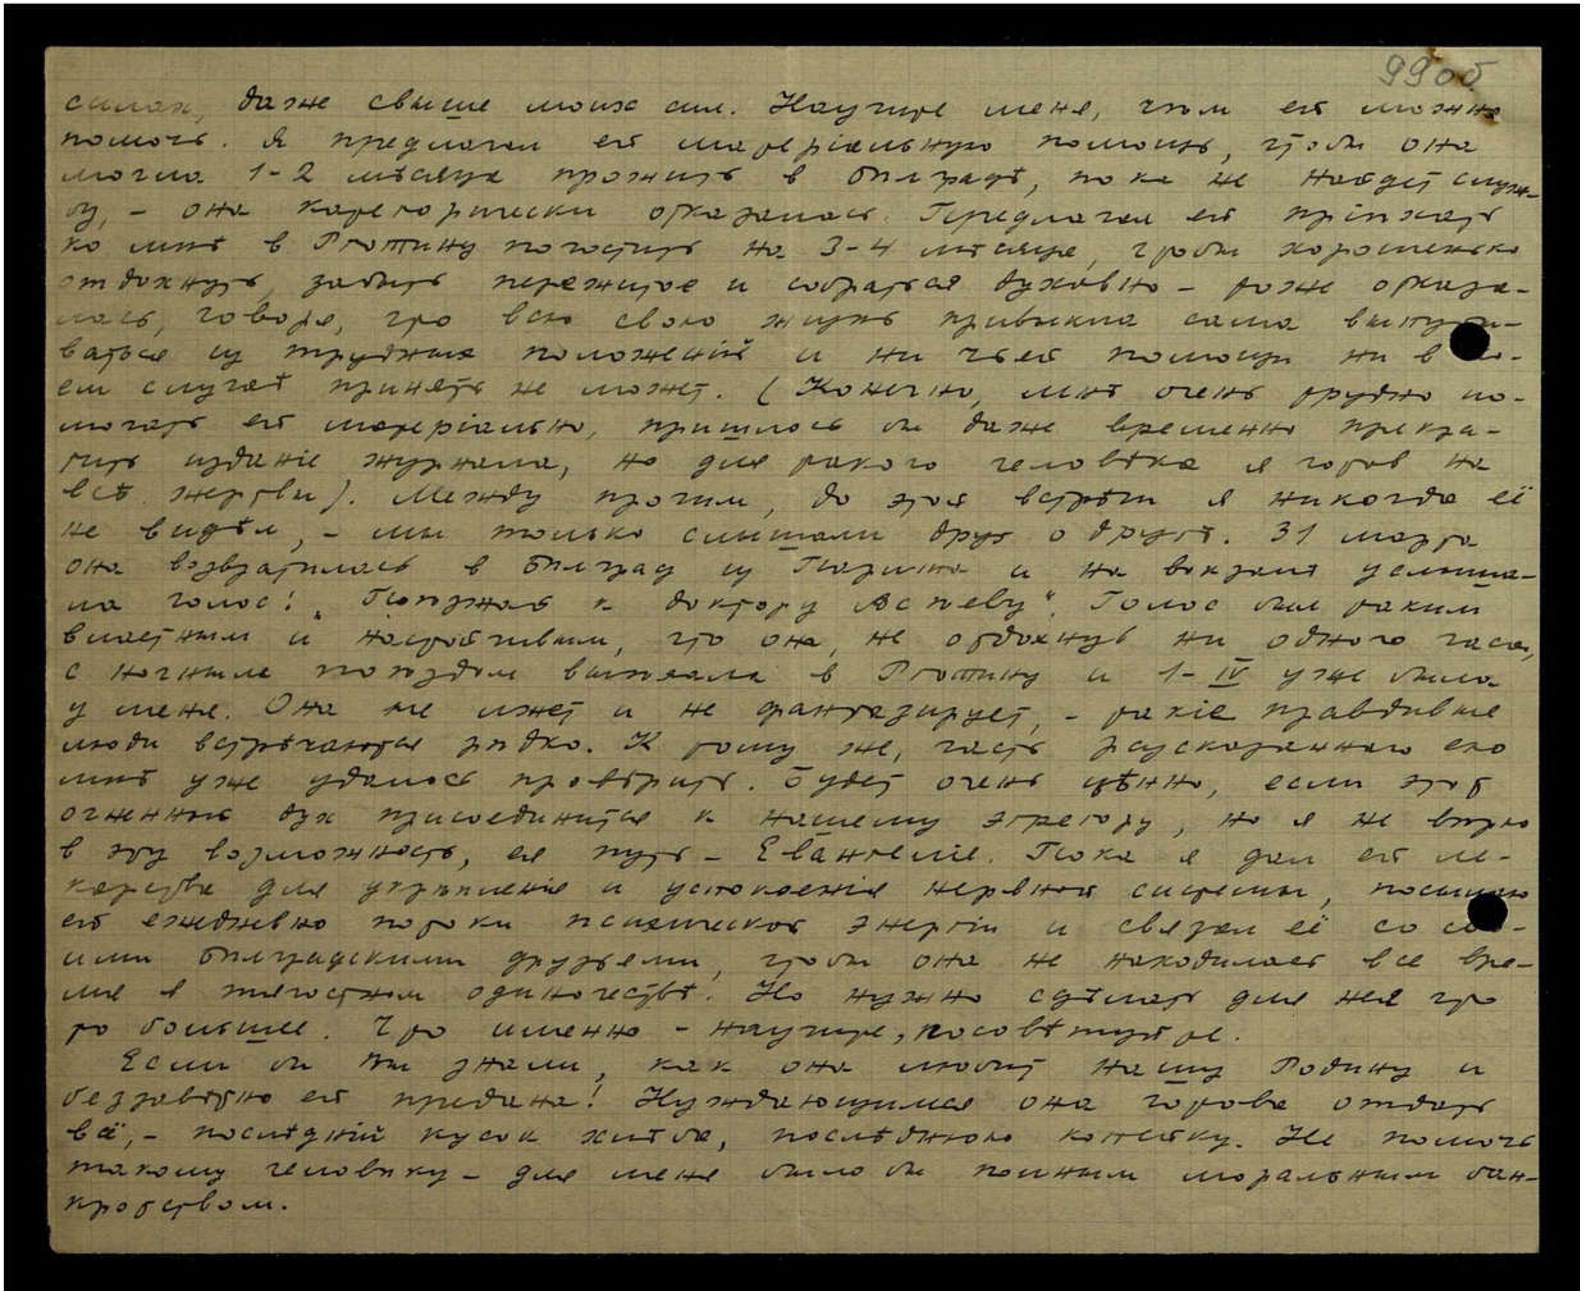 99об
силах, даже свыше моих сил. Научите меня, чѣм ей можно
помочь. Я предлагал ей матеріальную помощь, чтобы она
могла 1-2 мѣсяца прожить в Бѣлградѣ, пока не найдет служ-
бу, - она категорически отказалась. Предлагал ей пріѣхать
ко мнѣ в Рготину погостить на 3-4 мѣсяца, чтобы хорошенько
отдохнуть, забыть пережитое и собраться духовно - тоже отказа-
лась, говоря, что всю свою жизнь привыкла сама выпуты-
ваться из трудных положеній и ни чьей помощи ни в
ем случаѣ принять не может. (Конечно, мнѣ очень трудно по-
могать ей матеріально, пришлось бы даже временно прекра-
тить изданіе журнала, но для такого человѣка я готов на
всѣ жертвы). Между прочим, до этой встрѣчи я никогда её
не видѣл, - мы только слышали друг о другѣ. 31 марта
она возвратилась в Бѣлград из Парижа и на вокзалѣ услыша-
ла голос: „Поѣзжай к доктору Асѣеву“. Голос был таким
властным и настойчивым, что она, не отдохнув ни одного часа,
с ночным поѣздом выѣхала в Рготину и 1-IV уже была
у меня. Она не лжет и не фантазирует, - такіе правдивые
люди встрѣчаются рѣдко. К тому же, часть разсказаннаго ею
мнѣ уже удалось провѣрить. Будет очень цѣнно, если этот
огненный дух присоединится к нашему эгрегору, но я не вѣрю
в эту возможность, ея путь - Евангеліе. Пока я дал ей ле-
карства для укрѣпленія и успокоенія нервной системы, посылаю
ей ежедневно потоки психической энергіи и связал её со сво-
ими бѣлградскими друзьями, чтобы она не находилась все вре-
мя в тягостном одиночествѣ. Но нужно сдѣлать для нея что
то большее. Что именно - научите, посовѣтуйте.
Если бы Вы знали, как она любит нашу Родину и
беззавѣтно ей предана! Нуждающимся она готова отдать
всё, - послѣдній кусок хлѣба, послѣднюю копейку. Не помочь
такому человѣку - для меня было бы полным моральным бан-
кротством.